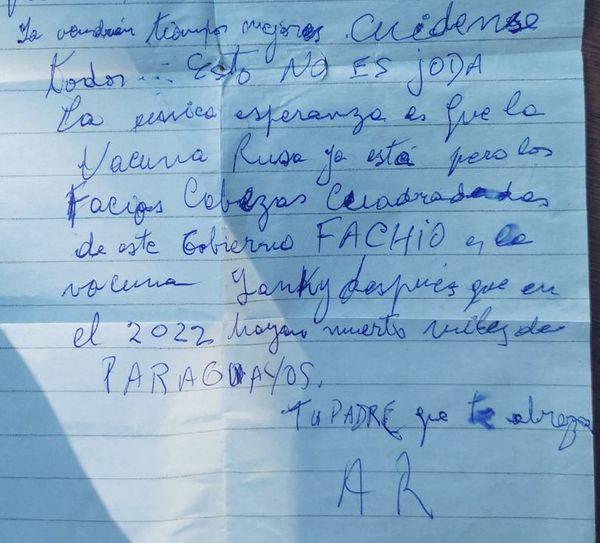 Ya vendrán tiempos mejores. Cuidense
todos... Esto NO ES JODA
La única esperanza es que la
Vacuna Rusa ya está pero los
Fachos Cabezas Cuadradas
de este Gobierno FACHIO es la
vacuna Yanky después que en
el 2022 hayan muerto miles de
PARAGUAYOS.
Tu PADRE que te abraza
AR